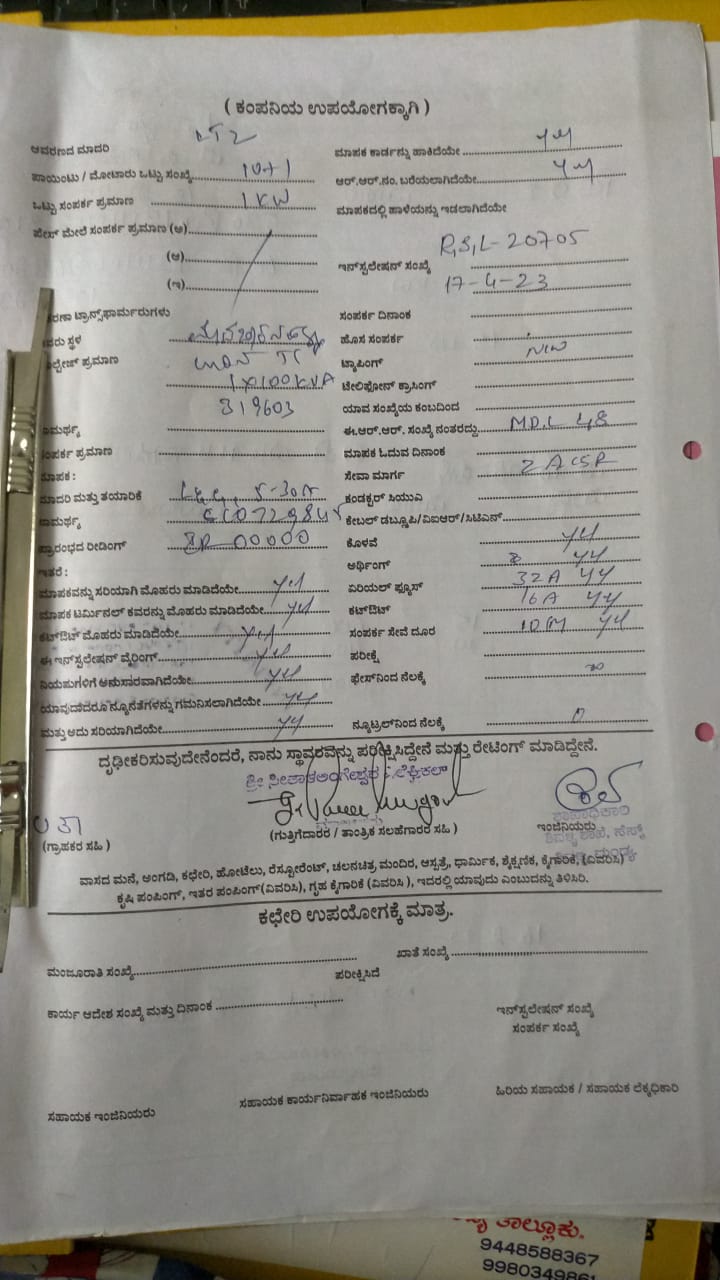 ( ಕಂಪನಿಯ ಉಪಯೋಗಕ್ಕಾಗಿ )
ಆವರಣದ ಮಾದರಿ LT2
ಪಾಯಿಂಟು / ಮೋಟಾರು ಒಟ್ಟು ಸಂಖ್ಯೆ 10+1
ಒಟ್ಟು ಸಂಪರ್ಕ ಪ್ರಮಾಣ 1 KW
ಫೇಸ್ ಮೇಲೆ ಸಂಪರ್ಕ ಪ್ರಮಾಣ (ಅ)
(ಆ)
(ಇ)
ಸರಣಾ ಟ್ರಾನ್ಸ್‌ಫಾರ್ಮರುಗಳು
ಸ್ಥಳ
ಪ್ರಮಾಣ
1X100KVA
319603
ಸಂಪರ್ಕ ಪ್ರಮಾಣ
ಮಾಪಕ :
ಮಾದರಿ ಮತ್ತು ತಯಾರಿಕೆ 5-30A
ಪ್ರಾರಂಭದ ರೀಡಿಂಗ್ 00000
ಇತರೆ :
ಮಾಪಕವನ್ನು ಸರಿಯಾಗಿ ಮೊಹರು ಮಾಡಿದೆಯೇ
ಮಾಪಕ ಟರ್ಮಿನಲ್ ಕವರನ್ನು ಮೊಹರು ಮಾಡಿದೆಯೇ
ಕಟ್‌ಔಟ್ ಮೊಹರು ಮಾಡಿದೆಯೇ
ಈ ಇನ್‌ಸ್ಟಲೇಷನ್ ವೈರಿಂಗ್
ನಿಯಮಗಳಿಗೆ ಅನುಸಾರವಾಗಿದೆಯೇ
ಯಾವುದಾದರೂ ನ್ಯೂನತೆಗಳನ್ನು ಗಮನಿಸಲಾಗಿದೆಯೇ
ಮತ್ತು ಅದು ಸರಿಯಾಗಿದೆಯೇ
ಮಾಪಕ ಕಾರ್ಡನ್ನು ಹಾಕಿದೆಯೇ
ಆರ್.ಆರ್.ನಂ. ಬರೆಯಲಾಗಿದೆಯೇ
ಮಾಪಕದಲ್ಲಿ ಹಾಳೆಯನ್ನು ಇಡಲಾಗಿದೆಯೇ
ಇನ್‌ಸ್ಟಲೇಷನ್ ಸಂಖ್ಯೆ R,S,L-20705
17-4-23
ಸಂಪರ್ಕ ದಿನಾಂಕ
ಹೊಸ ಸಂಪರ್ಕ
ಟ್ಯಾಪಿಂಗ್ NIW
ಟೆಲಿಫೋನ್ ಕ್ರಾಸಿಂಗ್
ಯಾವ ಸಂಖ್ಯೆಯ ಕಂಬದಿಂದ
ಈ.ಆರ್.ಆರ್. ಸಂಖ್ಯೆ ನಂತರದ್ದು MDL 48
ಮಾಪಕ ಓದುವ ದಿನಾಂಕ
ಸೇವಾ ಮಾರ್ಗ 2 ACSR
ಕಂಡಕ್ಟರ್ ಸಿಯುಎ
ಕೇಬಲ್ ಡಬ್ಲೂಪಿ/ವಿಐಆರ್/ಸಿಟಿಎಸ್
ಕೊಳವೆ
ಅರ್ಥಿಂಗ್
ಏರಿಯಲ್ ಫ್ಯೂಸ್ 32A
ಕಟ್‌ಔಟ್ 16A
ಸಂಪರ್ಕ ಸೇವೆ ದೂರ 10M
ಪರೀಕ್ಷೆ
ಫೇಸ್‌ನಿಂದ ನೆಲಕ್ಕೆ
ನ್ಯೂಟ್ರಲ್‌ನಿಂದ ನೆಲಕ್ಕೆ 0
ದೃಢೀಕರಿಸುವುದೇನೆಂದರೆ, ನಾನು ಸ್ಥಾವರವನ್ನು ಪರೀಕ್ಷಿಸಿದ್ದೇನೆ ಮತ್ತು ರೇಟಿಂಗ್ ಮಾಡಿದ್ದೇನೆ.
(ಗ್ರಾಹಕರ ಸಹಿ )
(ಗುತ್ತಿಗೆದಾರರ / ತಾಂತ್ರಿಕ ಸಲಹೆಗಾರರ ಸಹಿ )
ಇಂಜಿನಿಯರು
ವಾಸದ ಮನೆ, ಅಂಗಡಿ, ಕಛೇರಿ, ಹೋಟೆಲು, ರೆಸ್ಟೋರೆಂಟ್, ಚಲನಚಿತ್ರ ಮಂದಿರ, ಆಸ್ಪತ್ರೆ, ಧಾರ್ಮಿಕ, ಶೈಕ್ಷಣಿಕ, ಕೈಗಾರಿಕೆ, (ವಿವರಿಸಿ)
ಕೃಷಿ ಪಂಪಿಂಗ್, ಇತರ ಪಂಪಿಂಗ್(ವಿವರಿಸಿ), ಗೃಹ ಕೈಗಾರಿಕೆ (ವಿವರಿಸಿ ), ಇದರಲ್ಲಿ ಯಾವುದು ಎಂಬುದನ್ನು ತಿಳಿಸಿರಿ.
ಕಛೇರಿ ಉಪಯೋಗಕ್ಕೆ ಮಾತ್ರ.
ಮಂಜೂರಾತಿ ಸಂಖ್ಯೆ
ಖಾತೆ ಸಂಖ್ಯೆ
ಪರೀಕ್ಷಿಸಿದೆ
ಕಾರ್ಯ ಆದೇಶ ಸಂಖ್ಯೆ ಮತ್ತು ದಿನಾಂಕ
ಇನ್‌ಸ್ಟಲೇಷನ್ ಸಂಖ್ಯೆ
ಸಂಪರ್ಕ ಸಂಖ್ಯೆ
ಸಹಾಯಕ ಇಂಜಿನಿಯರು
ಸಹಾಯಕ ಕಾರ್ಯನಿರ್ವಾಹಕ ಇಂಜಿನಿಯರು
ಹಿರಿಯ ಸಹಾಯಕ / ಸಹಾಯಕ ಲೆಕ್ಕಧಿಕಾರಿ
ತಾಲ್ಲೂಕು.
9448588367